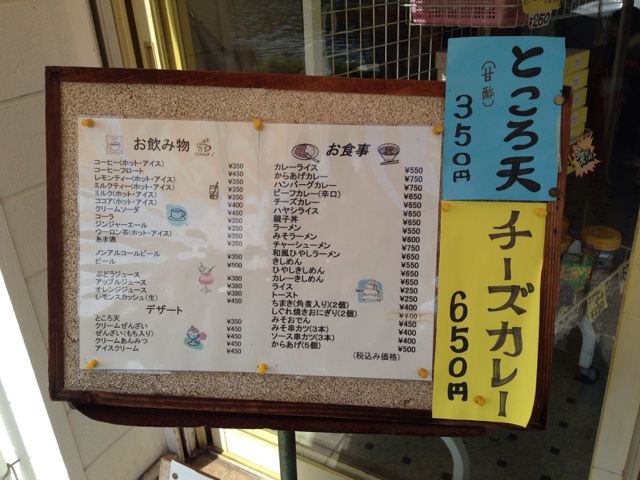 お飲み物
コーヒー(ホット・アイス) ¥350
コーヒーフロート ¥450
レモンティー(ホット・アイス) ¥350
ミルクティー(ホット・アイス) ¥350
ミルク(ホット・アイス) ¥350
ココア(ホット・アイス) ¥400
クリームソーダ ¥450
コーラ ¥350
ジンジャーエール ¥350
ウーロン茶(ホット・アイス) ¥350
あま酒 ¥350
ノンアルコールビール ¥350
ビール ¥500
ぶどうジュース ¥380
アップルジュース ¥380
オレンジジュース ¥380
レモンスカッシュ(生) ¥450
デザート
ところ天 ¥350
クリームぜんざい ¥450
ぜんざい(もち入り) ¥450
クリームあんみつ ¥450
アイスクリーム ¥450
お食事
カレーライス ¥550
からあげカレー ¥750
ハンバーグカレー ¥750
ビーフカレー(辛口) ¥650
チーズカレー ¥650
ハヤシライス ¥650
親子丼 ¥650
ラーメン ¥550
みそラーメン ¥600
チャーシューメン ¥750
和風ひやしラーメン ¥650
きしめん ¥550
ひやしきしめん ¥650
カレーきしめん ¥650
ライス
トースト ¥250
ちまき(角煮入り)(2個) ¥400
しぐれ焼きおにぎり(2個)
みそおでん
みそ串カツ(3本) ¥400
ソース串カツ(3本) ¥400
からあげ(5個) ¥500
(税込み価格)
ところ天
(甘酢)
350円
チーズカレー
650円
¥250